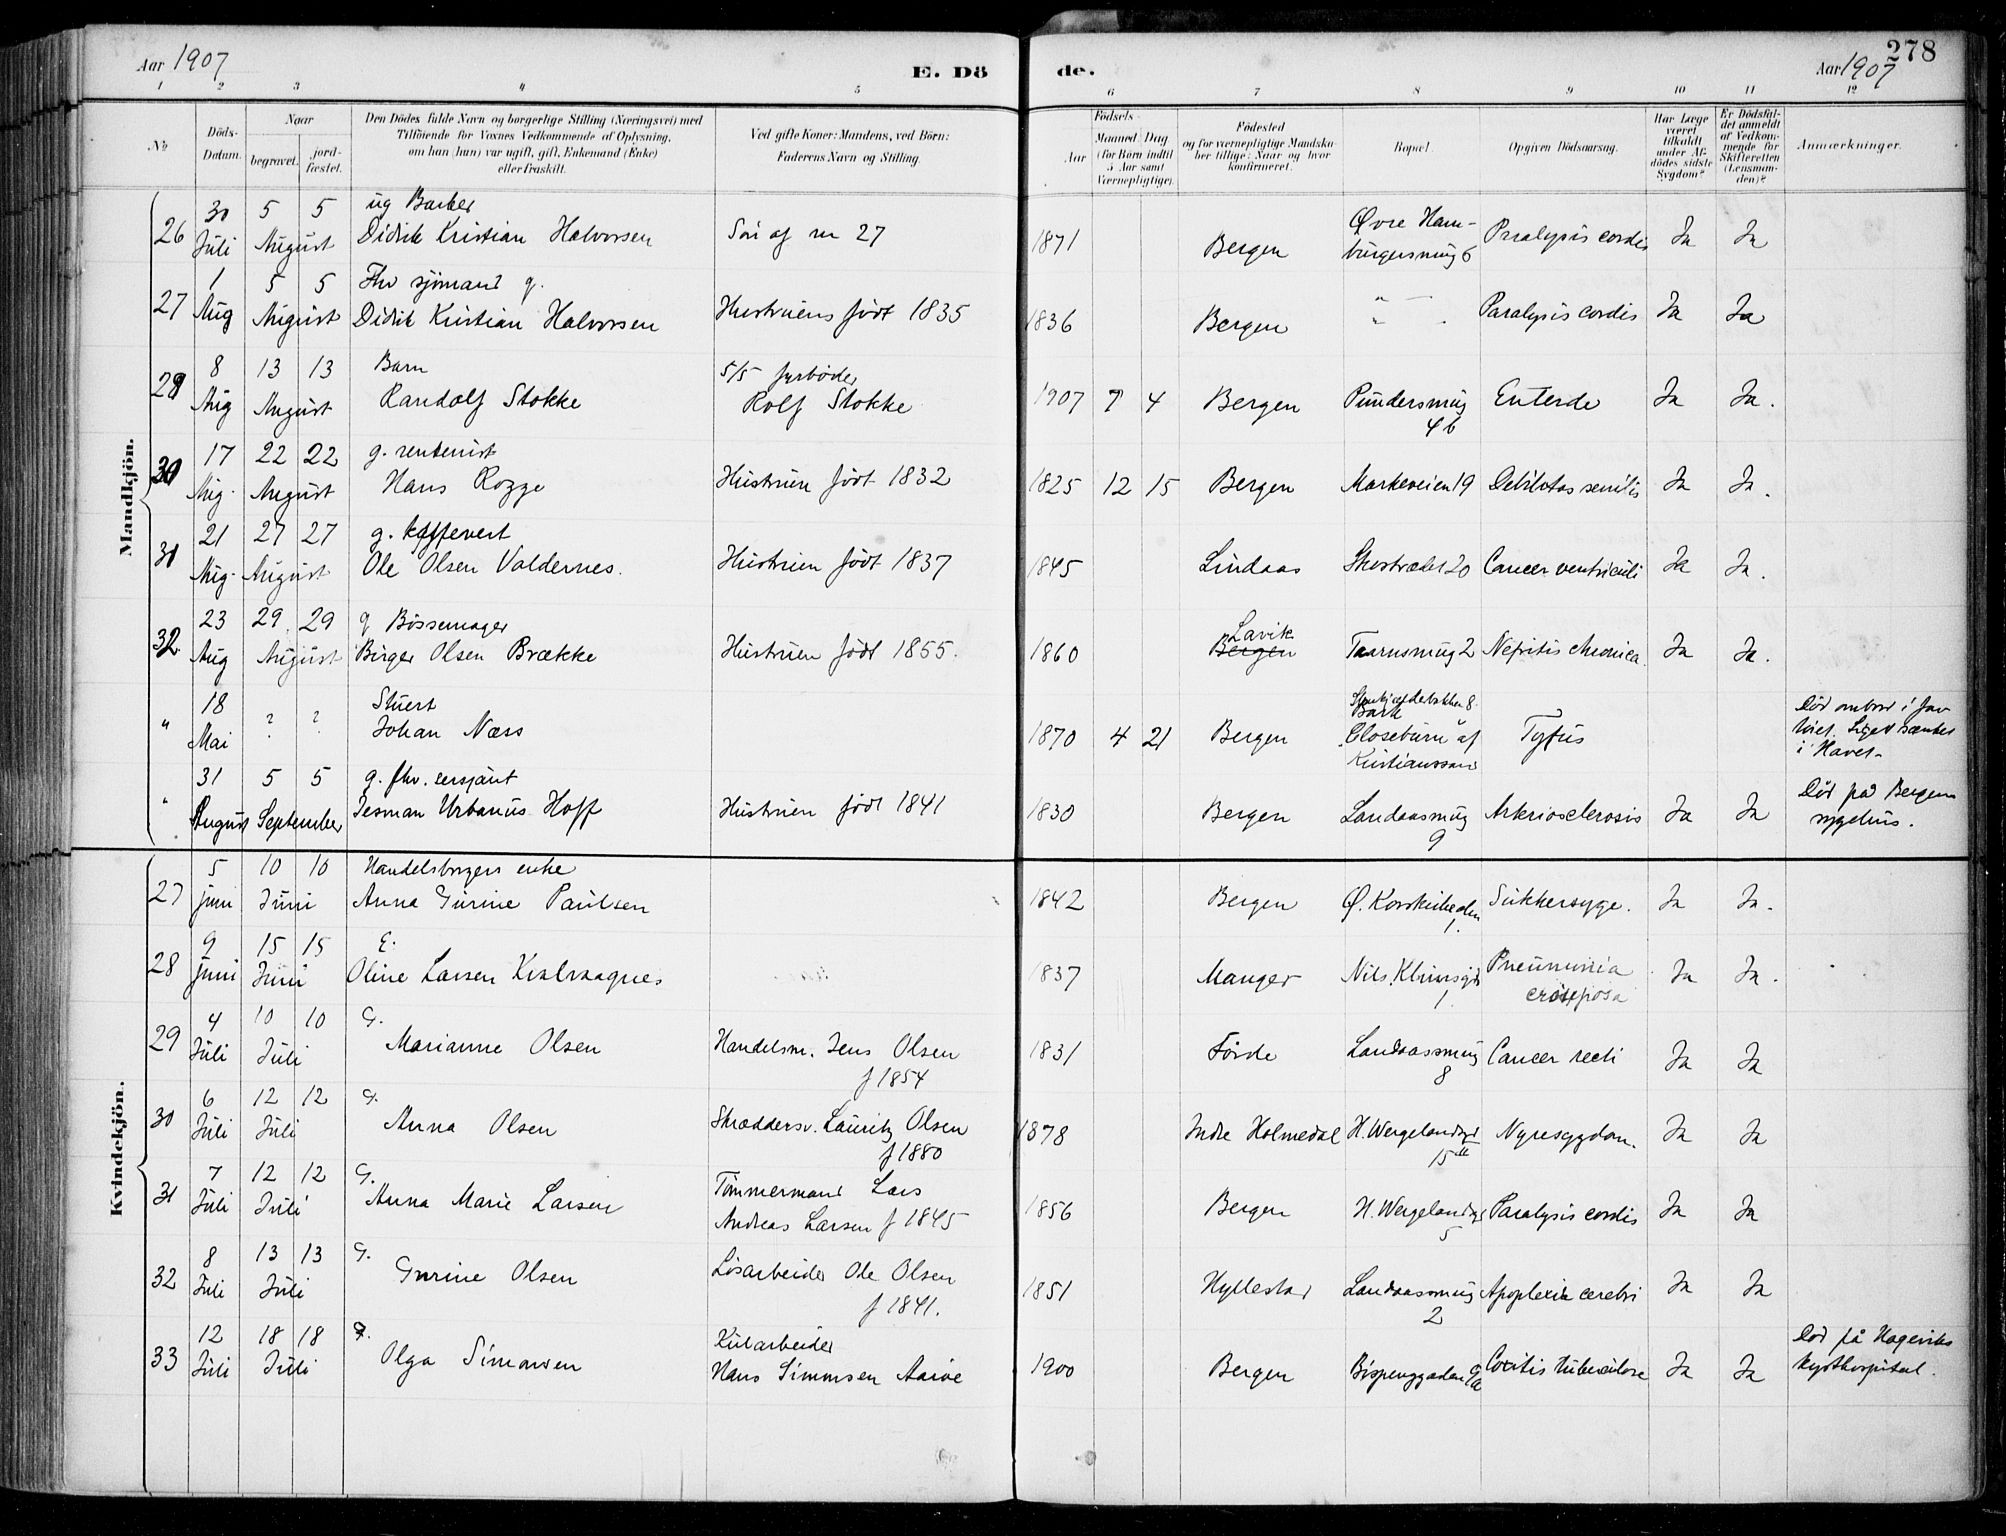 Aar 1907
E. Dö
de.
Aar 1907
278
1 2 3 4 5 6 7 8 9 10 11 12
№
Döds-Datum.
Naar
begravet.
jordfæstet.
Den Dödes fulde Navn og borgerlige Stilling (Næringsvei) med
Tilföiende for Voxnes Vedkommende af Oplysning,
om han (hun) var ugift, gift, Enkemand (Enke)
eller fraskilt.
Ved gifte Koner: Mandens, ved Börn:
Faderens Navn og Stilling.
Födsels-
Aar
Maaned Dag
(for Börn indtil
5 Aar samt
Værnepligtige).
Födested
og for værnepligtige Mandska-
ber tillige: Naar og hvor
konfirmeret.
Bopæl
Opgiven Dödsaarsag.
Har Læge
været
tilkaldt
under Af-
dödes sidste
Sygdom?
Er Dödsfal-
det anmeldt
af Vedkom-
mende for
Skifteretten
(Lensman-
den)?
Anmærkninger.
Mandkjön.
26 30 Juli 5 5 August ug Barber
Didrik Kristian Halvorsen Sön af nr 27 1871 Bergen Øvre Ham-
burgersmug 6 Paralysis cordis Ja Ja
27 1 Aug 5 5 August Fhv sjömand g.
Didrik Kristian Halvorsen Hustruens født 1835 1836 Bergen " " Paralysis cordis Ja Ja
29 8 Aug 13 13 August Barn
Randolf Stokke 5/5 fyrböder
Rolf Stokke 1907 7 4 Bergen Pundersmug
4b Enterde Ja Ja.
30 17 Aug. 22 22 August g. rentenist
Hans Rogge Hustruen født 1832 1825 12 15 Bergen Markeveien 19 Debilitas senilis Ja Ja.
31 21 Aug. 27 27 August g. kaffevert
Ole Olsen Valdernes. Hustruen født 1837 1845 Lindaas Skostrædet 20 Cancer ventriculi Ja Ja.
32 23 Aug 29 29 August g Bössemager
Birger Olsen Brække Hustruen født 1855. 1860 Lavik
Bergen Taarnsmug 2 Nefritis chronica. Ja Ja.
" 18 Mai ? ? Stuert
Johan Næss 1870 4 21 Bergen 8.
Bark
"Closeburn" af
Kristianssand Tyfus Död ombord i far-
töiet. Liget sænket
i Havet.
" 31 August 5 5 September g. fhv. sersjant
Jesman Urbanus Hoff Hustruen født 1841 1830 Bergen Landaasmug
9 Arteriosclerosis Ja Ja Död paa Bergens
sygehus.
Kvindekjön.
27 5 Juni 10 10 Juni Handelsborgers enke
Anna Gurine Paulsen 1842 Bergen Ø. Korskirkealm.
1. Sukkersyge. Ja Ja.
28 9 Juni 15 15 Juni E.
Oline Larsen 1837 Manger Nils Klimsgd
1. Pneumonia
crouposa Ja Ja.
29 4 Juli 10 10 Juli G.
Marianne Olsen Handelsm. Jens Olsen
f 1854 1831 Förde Landaassmug
8 Cancer recti Ja Ja
30 6 Juli 12 12 Juli G.
Anna Olsen Skræddersv. Lauritz Olsen
f 1880 1878 Indre Holmedal H. Wergelandsgd
15 Nyresygdom. Ja Ja
31 7 Juli 12 12 Juli G.
Anna Marie Larsen Tömmermand Lars
Andreas Larsen f 1845 1856 Bergen H. Wergelandsgd
5 Paralysis cordis Ja Ja
32 8 Juli 13 13 Juli G.
Gurine Olsen Lösarbeider Ole Olsen
f 1841. 1851 Hyllestad Landaassmug
2 Apoplexia cerebri Ja Ja
33 12 Juli 18 18 Juli
Olga Simonsen Kularbeider
Hans Simonsen 1900 Bergen Bispenggaden 9a Coxitis tuberculose Ja Ja Död på Hageviks
kysthospital.